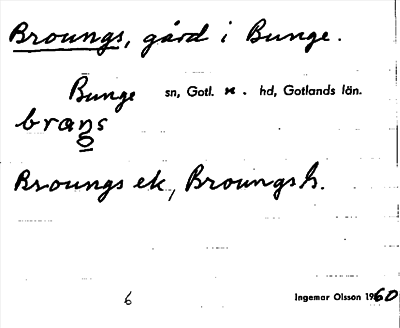 Broungs, gård i Bunge.
Bunge sn, Gotl. n. hd, Gotlands län.
brans
Broungs ek, Broungs h.
6
Ingemar Olsson 1960